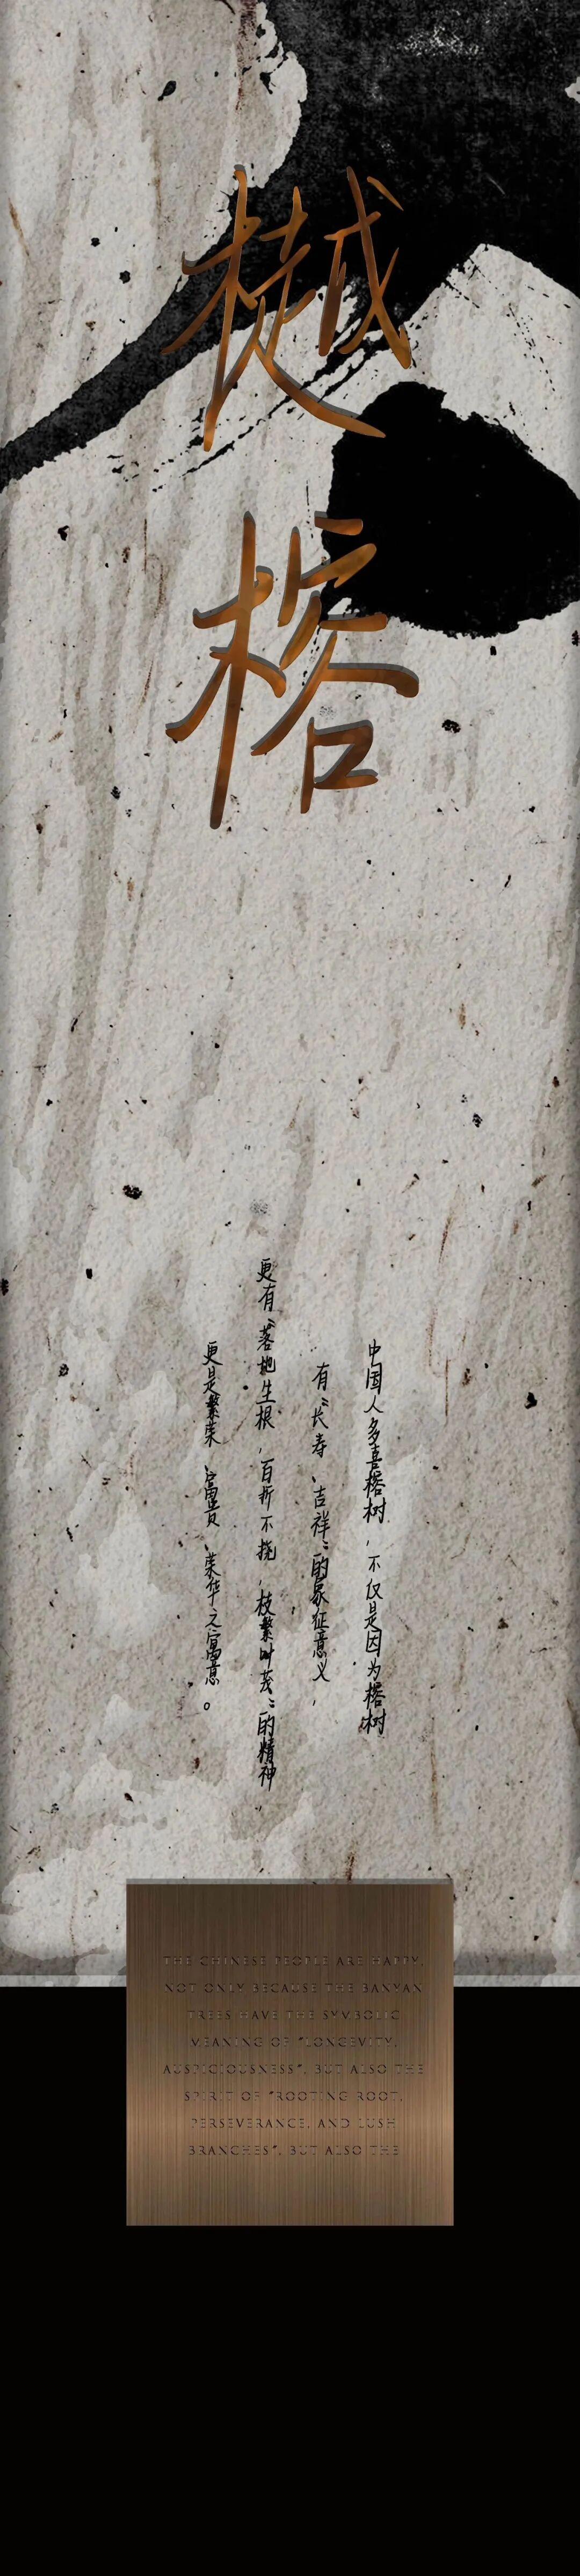 樾
榕
中国人多喜榕树，不仅是因为榕树
有“长寿、吉祥”的象征意义，
更有“落地生根，百折不挠，枝繁叶茂”的精神，
更是繁荣、富贵、荣华之寓意。
THE CHINESE PEOPLE ARE HAPPY,
NOT ONLY BECAUSE THE BANYAN
TREES HAVE THE SYMBOLIC
MEANING OF "LONGEVITY,
AUSPICIOUSNESS", BUT ALSO THE
SPIRIT OF "ROOTING ROOT,
PERSEVERANCE, AND LUSH
BRANCHES", BUT ALSO THE